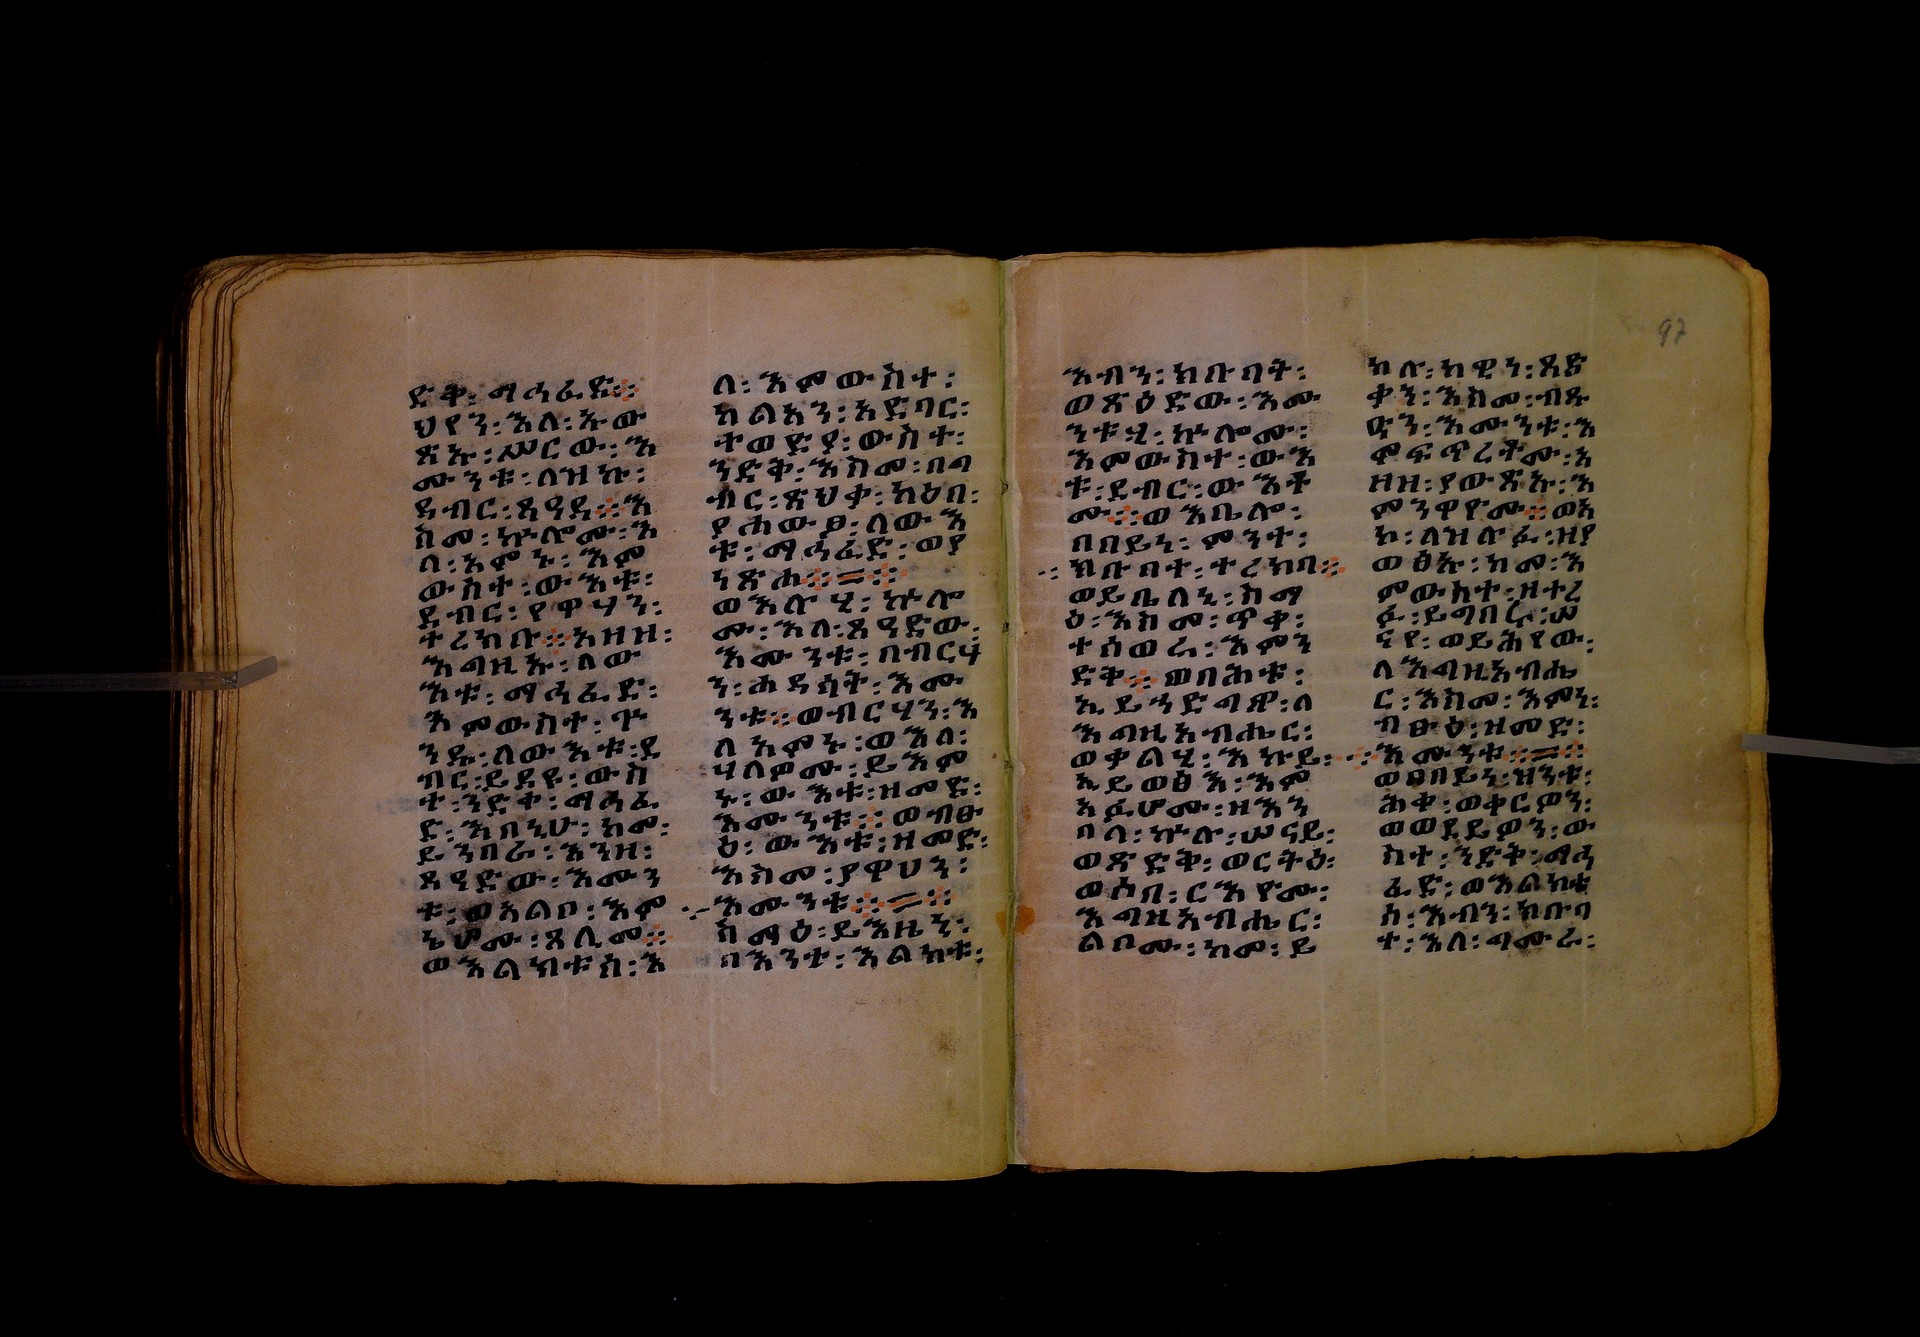 ድቅ፡ማኅፈድ።
ህየን፡እለ፡ኡው
ጽኡ፡ሥርው፡እ
ሙንቱ፡ለዝኩ፡
ደብር፡ጸዓዳ።እ
ስመ፡ኵሎሙ፡እ
ለ፡አምኑ፡እም
ውስተ፡ውእቱ፡
ደብር፡የዋሃን፡
ተረክቡ።አዘዘ፡
እግዚኡ፡ለው
እቱ፡ማኅፈድ፡
እምውስተ፡ጕ
ንዱ፡ለውእቱ፡ደ
ብር፡ይደዩ፡ውስ
ተ፡ንድቀ፡ማኅፈ
ድ፡እስኒሁ፡ከመ፡
ይንበሩ፡እንዘ፡
ጸዓድው፡እሙን
ቱ፡ወአልቦ፡እም
ኔሆሙ፡ጸሊመ።
ወእልክቱስ፡እ
ለ፡እምውስተ፡
ክልእን፡አድባር፡
ተወድያ፡ውስተ፡
ንድቅ፡እስመ፡በባ
ብር፡ጽህቃ፡ካዕበ፡
ያሐውፃ፡ለውእ
ቱ፡ማኅፈድ፡ወያ
ንጽሐ።=።
ወእሉሂ፡ኵሎ
ሙ፡እለ፡ጸዓድው፡
እሙንቱ፡በብርሃ
ን፡ሐዳሳት፡እሙ
ንቱ።ወብርሃን፡እ
ለ፡አምኑ፡ወእለ፡
ሃለዎሙ፡ይእም
ኑ፡ውእቱ፡ዘመድ፡
እሙንቱ።ወብፁ
ዕ፡ውእቱ፡ዘመድ፡
እስመ፡ያዋህን፡
እሙንቱ።=።
ስማዕ፡ይእዜን፡
በእንተ፡እልክቱ፡
እብን፡ክቡባት፡
ወጽዕድው፡እሙ
ንቱሂ፡ኵሎሙ፡
እምውስተ፡ውእ
ቱ፡ደብር፡ውእቶ
ሙ።ወእቤሎ፡
በበይነ፡ምንት፡
ክቡባተ፡ተረክባ።
ወይቤለኒ፡ስማ
ዕ፡እስመ፡ጥቀ፡
ተሰወሩ፡እምን
ድቅ።ወበሕቱ፡
ኢይንድግዎ፡ለ
እግዚአብሔር፡
ወቀልሂ፡አኮይ፡
ኢይወፅእ፡እም
አፉሆሙ፡ዘእን
በለ፡ኵሉ፡ሠናይ፡
ወጽድቅ፡ወርትዕ፡
ወሰበ፡ርእየሙ፡
እግዚአብሔር፡
ልቦሙ፡ከመ፡ይ
ክሉ፡ከዊነ፡ጻድ
ቃን፡እስመ፡ብዙ
ዓን፡እሙንቱ፡እ
ምፍጥረቶሙ፡አ
ዘዘ፡ያውጽኡ፡እ
ምንዋዮሙ።ወአ
ኮ፡ለዝሉፉ፡ዘያ
ወፅኡ፡ከመ፡እ
ምውስተ፡ዘተረ
ፉ፡ይግበሩ፡ሠ
ናየ፡ወይሕየው፡
ለእግዚአብሔ
ር፡እስመ፡እምነ፡
ብፁዕ፡ዘመድ፡
እሙንቱ።=።
ወበበይነ፡ዝንቱ፡
ሕቀ፡ወቀርዎን፡
ወወደይዎን፡ው
ስተ፡ንድቀ፡ማኅ
ፈድ፡ወእልክቱ
ሰ፡እብን፡ክቡባ
ት፡እለ፡ግሙራ፡
97